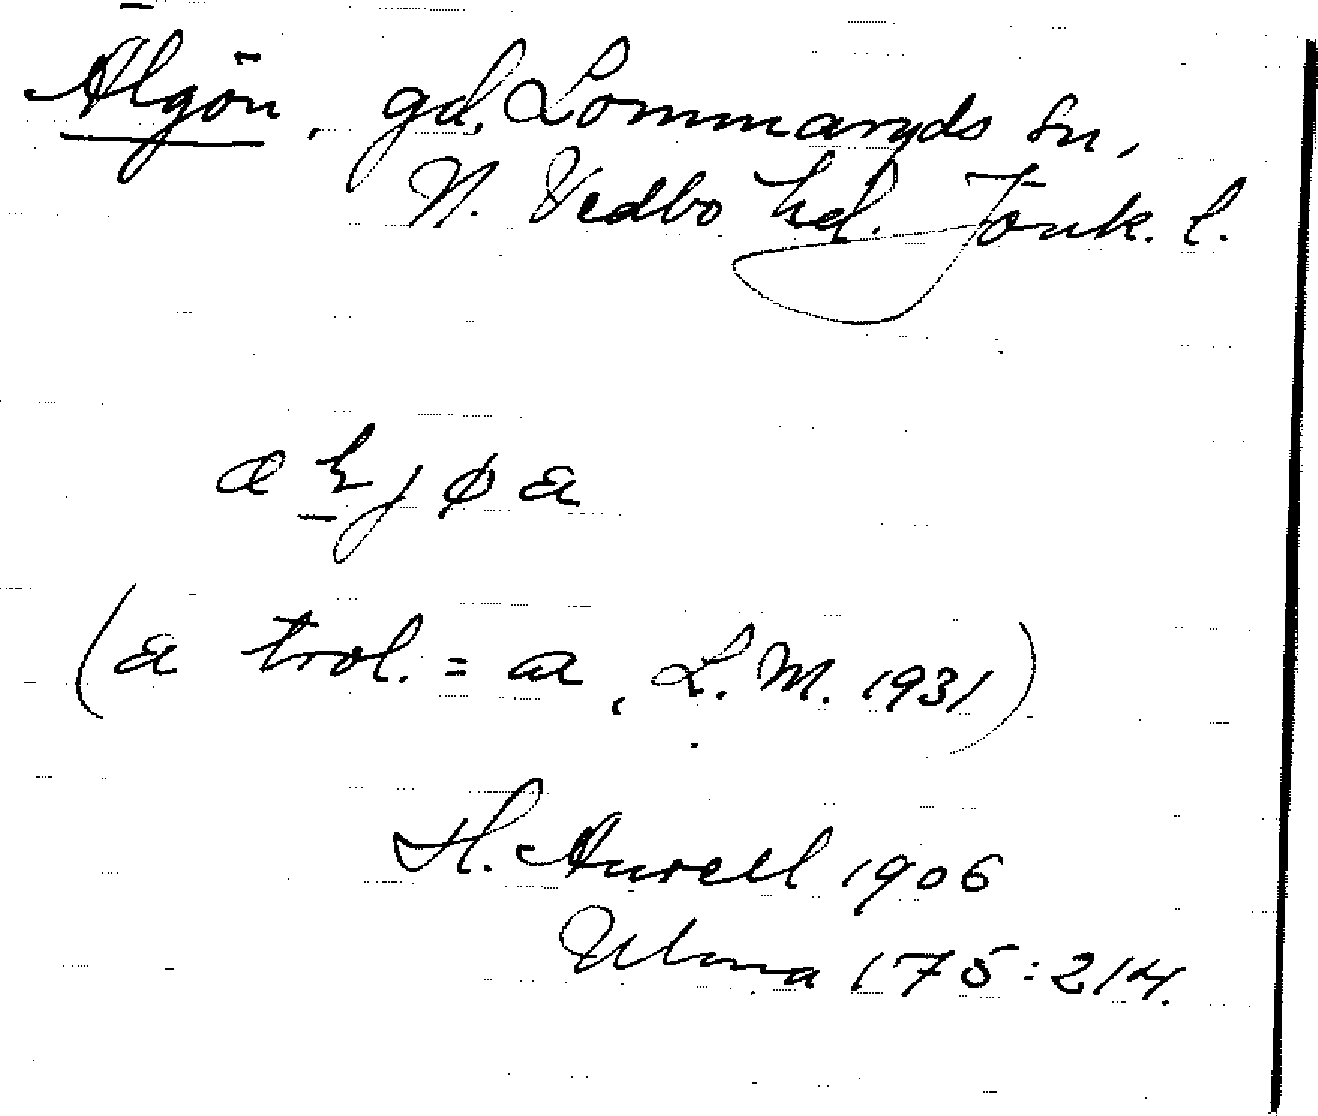 Älgön, gd, Lommaryds sn,
N. Vedbo hd. Jönk. l.
(a trol. = a, L. M. 1931)
H. Aurell 1906
Ulma 175:214.